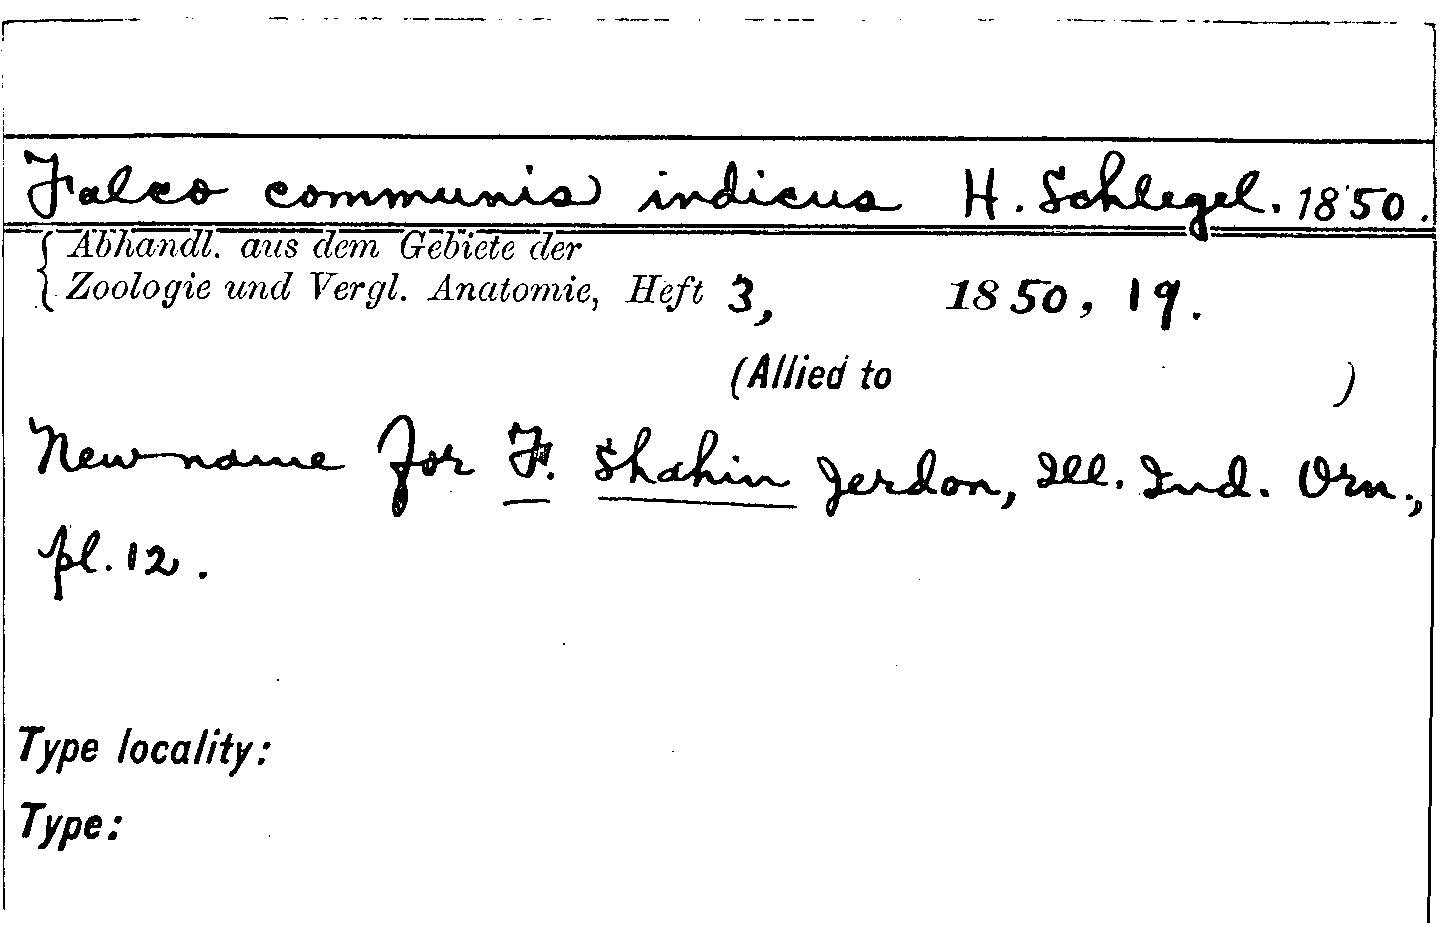 Falco communis indicus H. Schlegel. 1850.
Abhandl. aus dem Gebiete der
Zoologie und Vergl. Anatomie, Heft 3, 1850, 19.
(Allied to )
New name for F. Shahin Jerdon, Ill. Ind. Orn.,
pl. 12.
Type locality:
Type: